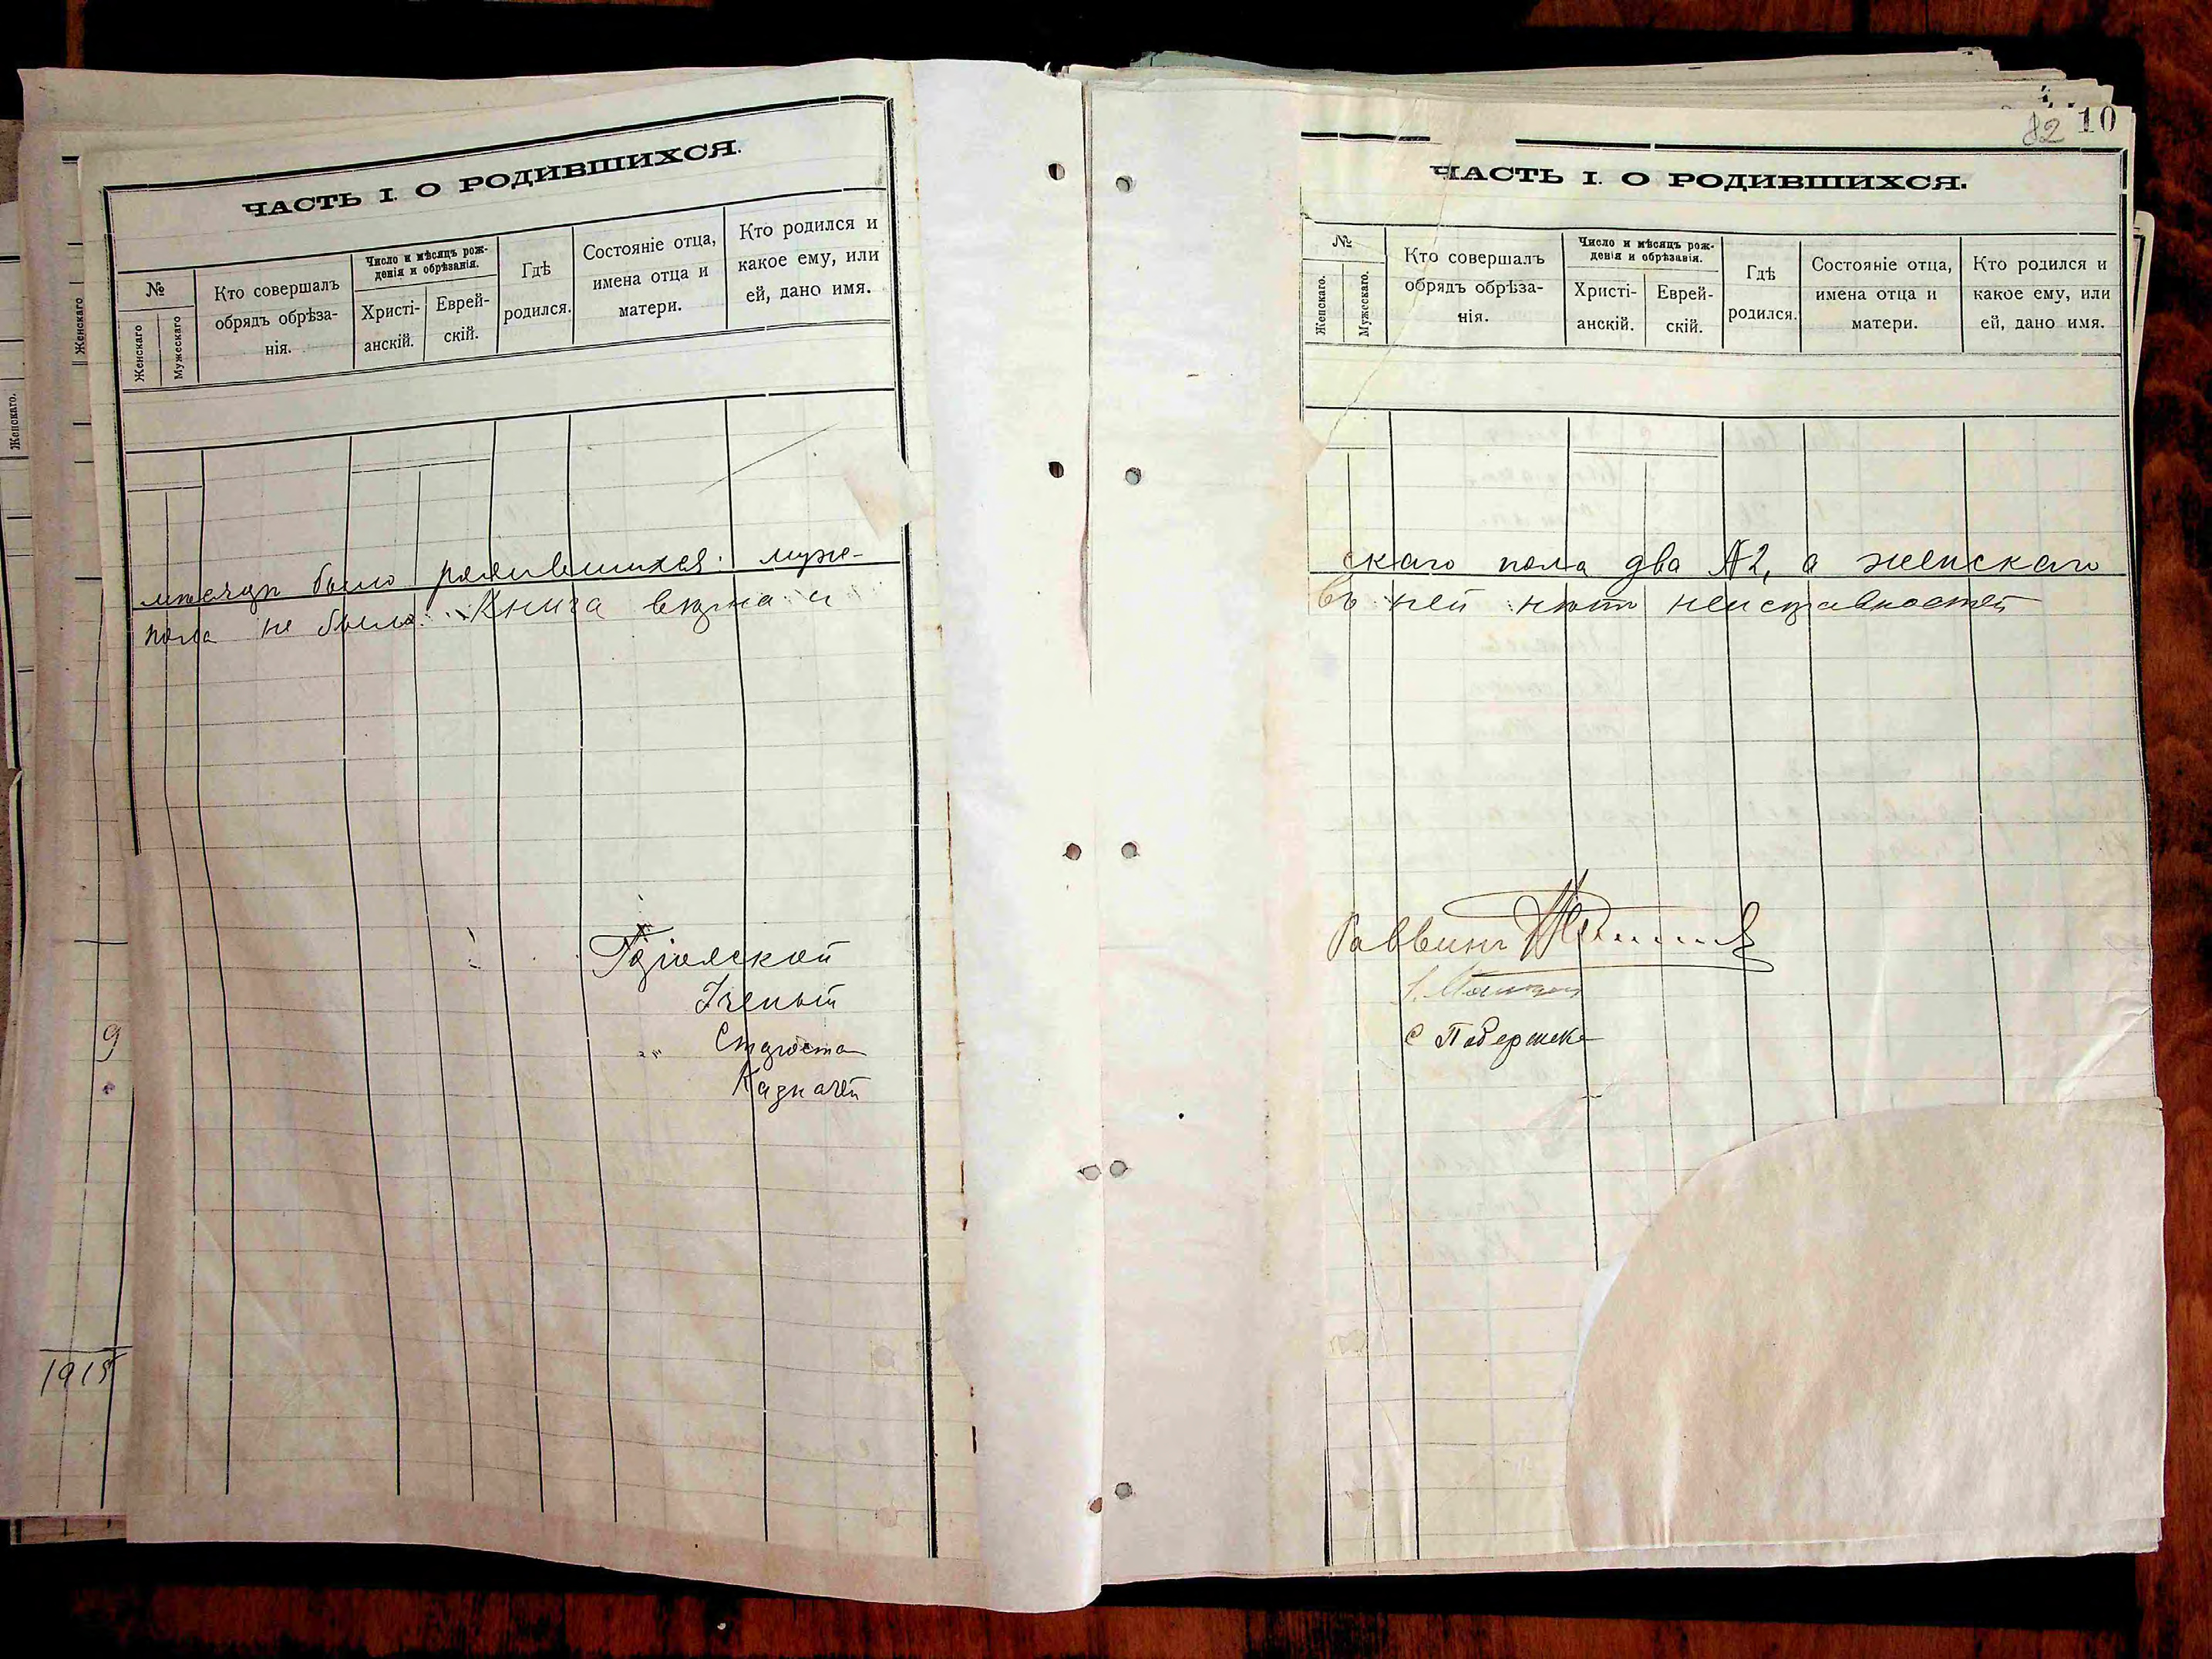 ЧАСТЬ I. О РОДИВШИХСЯ.
№
Женскаго
Мужескаго
Кто совершалъ
обрядъ обрѣза-
нія.
Число и мѣсяцъ рож-
денія и обрѣзанія.
Христі-
анскій.
Еврей-
скій.
Гдѣ
родился.
Состояніе отца,
имена отца и
матери.
Кто родился и
какое ему, или
ей, дано имя.
мѣсяцѣ было родившихся: муже-
пола не было. Книга вѣрна и
Ученый
Староста
Казначей
Женскаго
Женскаго.
9
1915
82 10
ЧАСТЬ I. О РОДИВШИХСЯ.
№
Женскаго.
Мужескаго.
Кто совершалъ
обрядъ обрѣза-
нія.
Число и мѣсяцъ рож-
денія и обрѣзанія.
Христі-
анскій.
Еврей-
скій.
Гдѣ
родился.
Состояніе отца,
имена отца и
матери.
Кто родился и
какое ему, или
ей, дано имя.
скаго пола два №2, а женскаго
въ ней нѣтъ неисправностей
Раввинъ